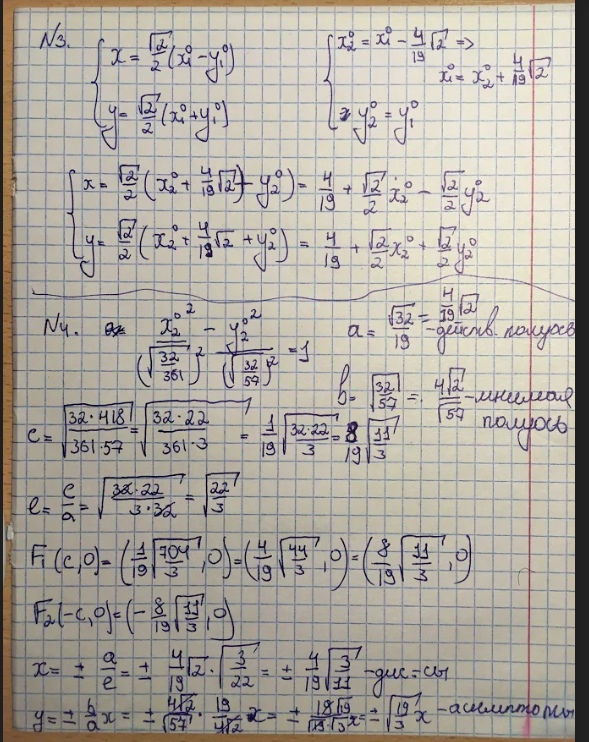 N3. { x = √2/2 (x₁⁰ - y₁⁰)
y = √2/2 (x₁⁰ + y₁⁰)
{ x₂⁰ = x₁⁰ - 4/19 √2 =>
x₁⁰ = x₂⁰ + 4/19 √2
y₂⁰ = y₁⁰
{ x = √2/2 (x₂⁰ + 4/19 √2 - y₂⁰) = 4/19 + √2/2 x₂⁰ - √2/2 y₂⁰
y = √2/2 (x₂⁰ + 4/19 √2 + y₂⁰) = 4/19 + √2/2 x₂⁰ + √2/2 y₂⁰
N4. x₂⁰² / (√(32/361))² - y₂⁰² / (√(32/57))² = 1
a = √32/19 = 4/19 √2 - действ. полуось
b = √(32/57) = 4√2/√57 - мнимая полуось
c = √(32·418 / 361·57) = √(32·22 / 361·3) = 1/19 √(32·22 / 3) = 8/19 √(11/3)
e = c/a = √(32·22 / 3·32) = √(22/3)
F₁(c, 0) = (1/19 √(704/3), 0) = (4/19 √(44/3), 0) = (8/19 √(11/3), 0)
F₂(-c, 0) = (-8/19 √(11/3), 0)
x = ± a/e = ± 4/19 √2 · √(3/22) = ± 4/19 √(3/11) - дис-сы
y = ± b/a x = ± 4√2/√57 · 19/4√2 x = ± √(19/3) x - асимптоты